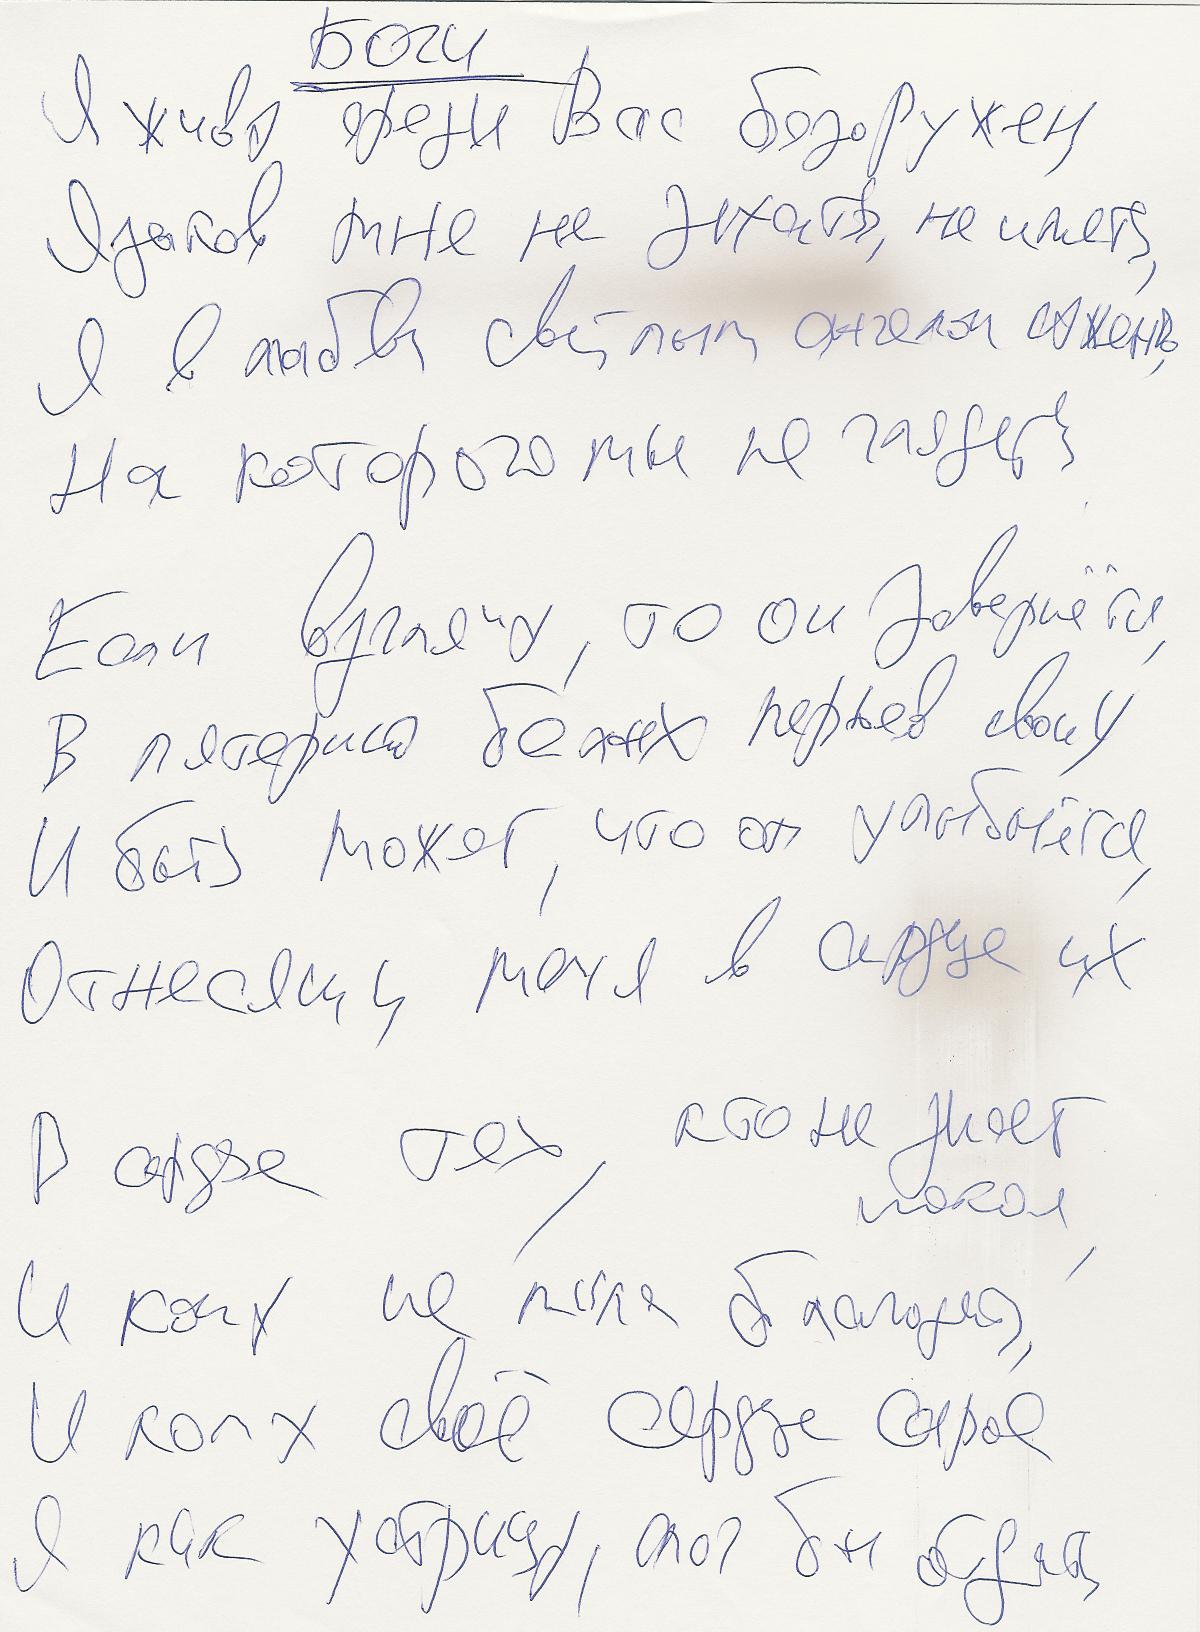 Боги
Я живу среди Вас безоружен
Языков мне не знать, не иметь,
Я в любви светлым ангелом сужен,
На которого мы не глядеть
Если взгляну, то он завернётся,
В пятерню белых перьев своих
И быть может, что он улыбнётся,
Отнесящий меня в сердце их
В сердце тех, кто не знает
покоя,
И кому не мила благодать,
И кому своё сердце сырое
Я как устрицу, мог бы отдать